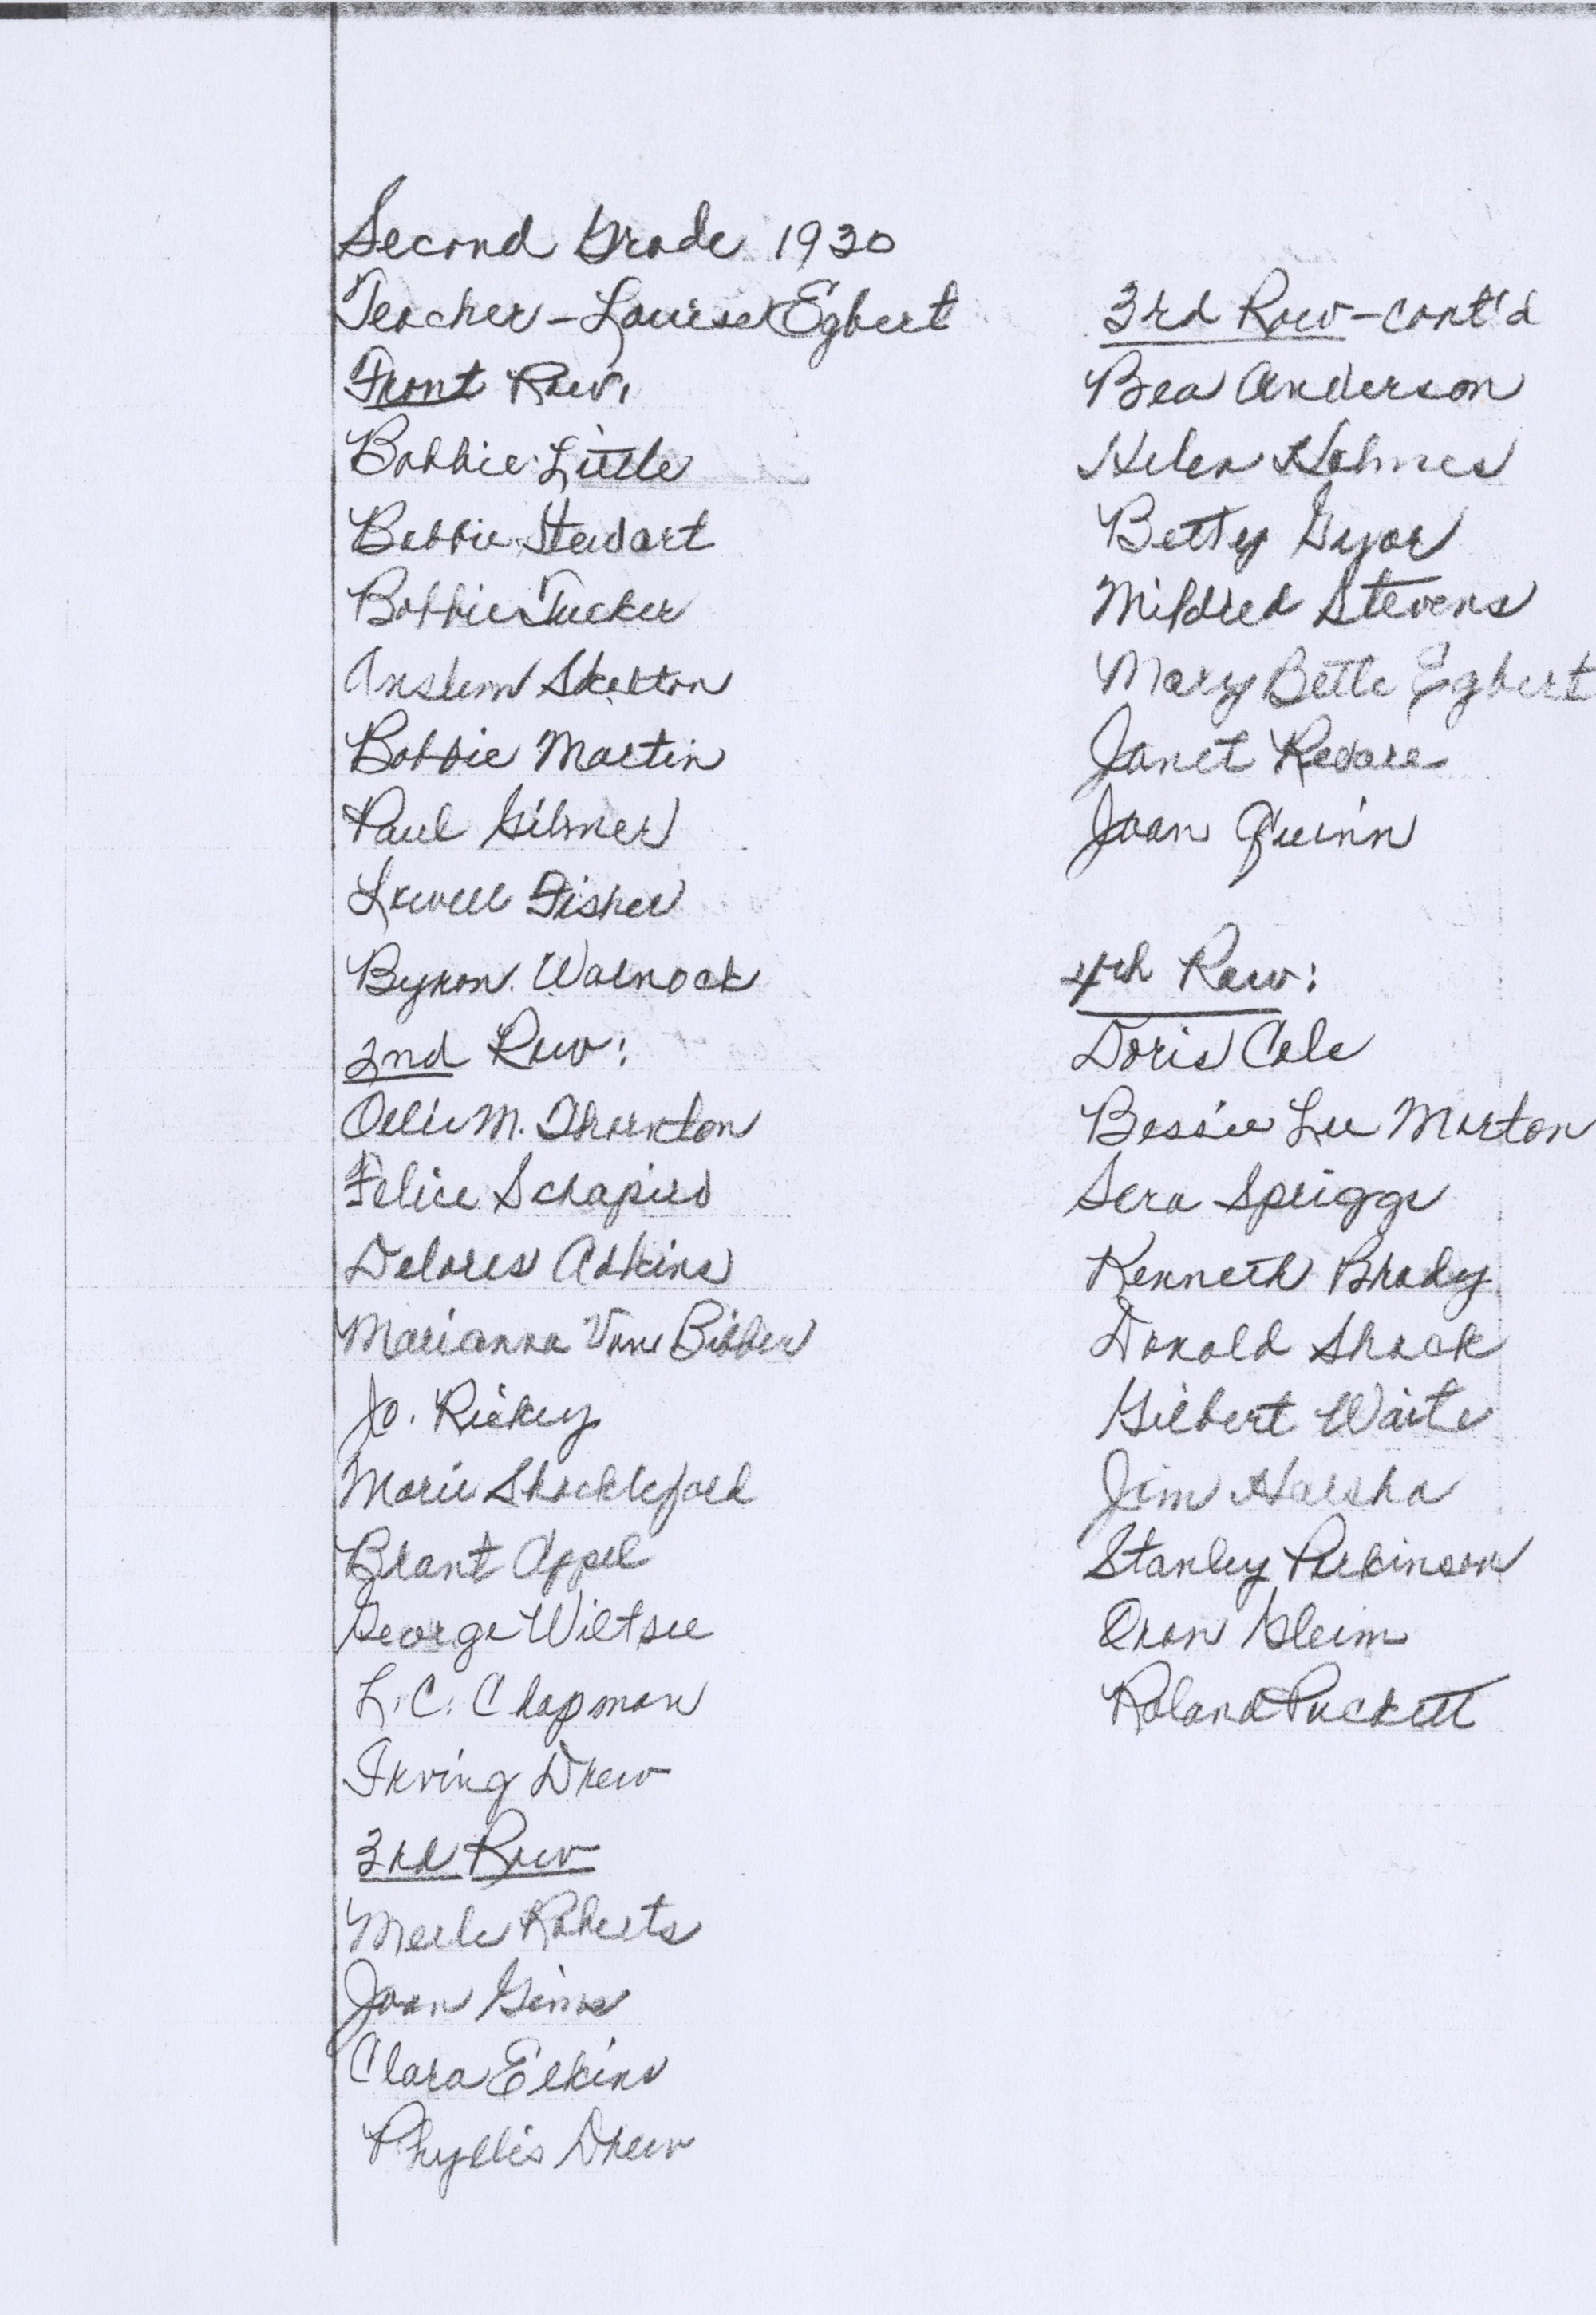 Second Grade 1930
Teacher - Louise Egbert
Front Row,
Bobbie Little
Bobbie Stewart
Bobbie Tucker
Anslem Skelton
Bobbie Martin
Paul Gilmer
Lowell Fisher
Byron Warnock
2nd Row:
Ollie M. Thornton
Felice Schapiro
Delores Adkins
Marianna Van Bibber
Jo. Rickey
Marie Shackleford
Brant Appel
George Wiltsee
L. C. Chapman
Irving Drew
3rd Row
Merle Roberts
Joan Gims
Clara Elkins
Phyllis Drew
3rd Row - cont'd
Bea Anderson
Helen Holmes
Betty Gyor
Mildred Stevens
Mary Bette Egbert
Janet Revare
Joan Quinn
4th Row:
Doris Cole
Bessie Lee Morton
Sera Spriggs
Kenneth Brady
Donald Shack
Gilbert Waite
Jim Harsha
Stanley Perkinson
Oran Gleim
Roland Puckett